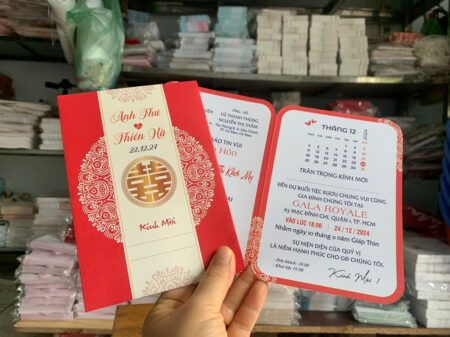 Anh Thư
Thiên Hà
22.12.24
囍
Kính Mời
ÔNG - BÀ
VŨ THANH PHONG
NGUYỄN THỊ THẮM
BÁO TIN VUI
Hôn
THÁNG 12
2024
TRÂN TRỌNG KÍNH MỜI
ĐẾN DỰ BUỔI TIỆC RƯỢU CHUNG VUI CÙNG
GIA ĐÌNH CHÚNG TÔI TẠI
GALA ROYALE
03 MẠC ĐĨNH CHI, QUẬN 1, TP. HCM
VÀO LÚC 18:00 24 / 12 / 2024
Nhằm ngày 10 tháng 11 năm Giáp Thìn
SỰ HIỆN DIỆN CỦA QUÝ VỊ
LÀ NIỀM HẠNH PHÚC CHO GĐ CHÚNG TÔI.
- Đón khách: 18:00
- Khai tiệc:
Kính Mời !